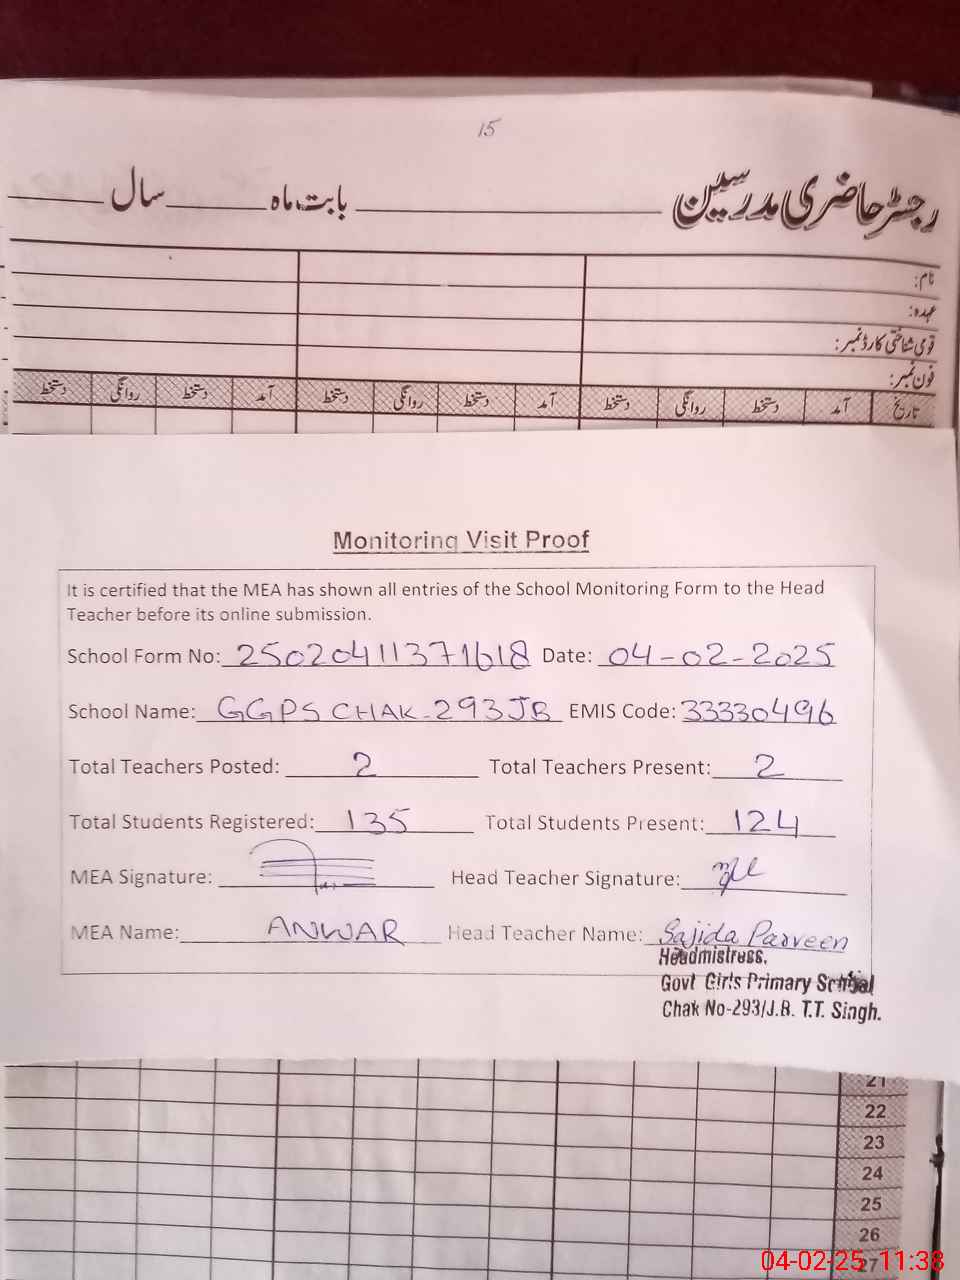 15
رجسٹر حاضری مدرسین ــــــــ بابت ماہ ــــــــ سال ــــــــ
نام:
عہدہ:
قومی شناختی کارڈ نمبر:
فون نمبر:
تاریخ آمد دستخط روانگی دستخط آمد دستخط روانگی دستخط آمد دستخط روانگی دستخط
Monitoring Visit Proof
It is certified that the MEA has shown all entries of the School Monitoring Form to the Head
Teacher before its online submission.
School Form No: 25020411371618 Date: 04-02-2025
School Name: GGPS CHAK-293JB EMIS Code: 33330496
Total Teachers Posted: 2 Total Teachers Present: 2
Total Students Registered: 135 Total Students Present: 124
MEA Signature: Head Teacher Signature:
MEA Name: ANWAR Head Teacher Name: Sajida Parveen
Headmistress,
Govt Girls Primary School
Chak No-293/J.B. T.T. Singh.
21
22
23
24
25
26
27
04-02-25 11:38